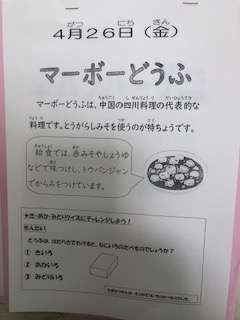 4月26日（金）
マーボーどうふ
マーボーどうふは、中国の四川料理の代表的な
料理です。とうがらしみそを使うのが特ちょうです。
給食では、赤みそやしょうゆ
などで味つけし、トウバンジャン
でからみをつけています。
★き・あか・みどりクイズにチャレンジしよう！
もんだい
とうふは、はたらきでわけると、なにいろのたべものでしょうか？
① きいろ
② あかいろ
③ みどりいろ